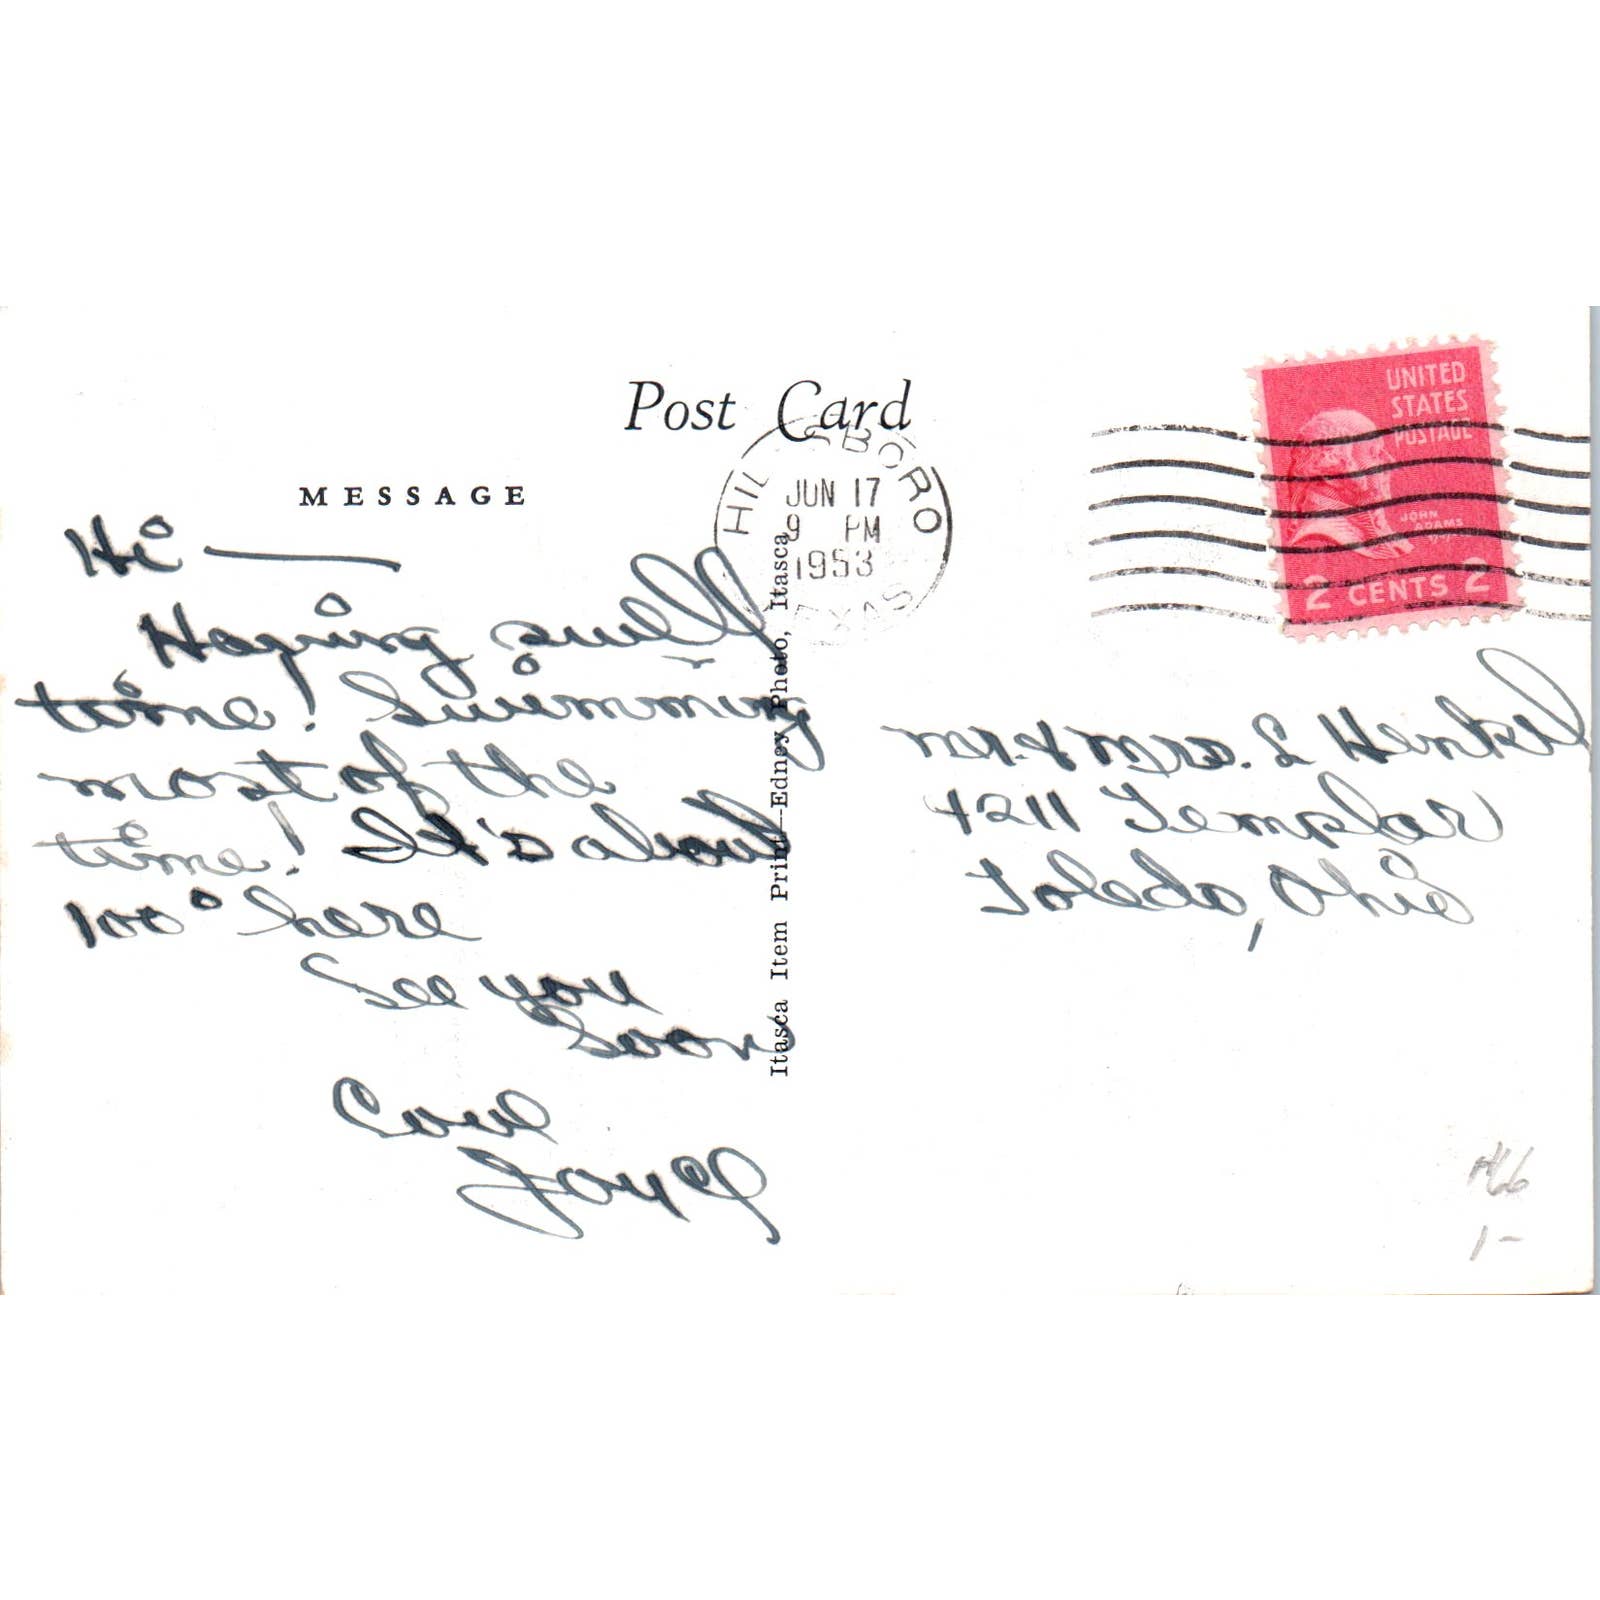 Post Card
MESSAGE
Hi —
Hoping swell
time! Swimming
most of the
time! It's about
100° here
See you
Soon
Love
Joyce
Itasca Item Print—Edney Photo, Itasca,
HILLSBORO
JUN 17
9 PM
1953
TEXAS
UNITED
STATES
POSTAGE
JOHN
ADAMS
2 CENTS 2
Mr. & Mrs. L Henkel
4211 Templar
Toledo, Ohio
1-